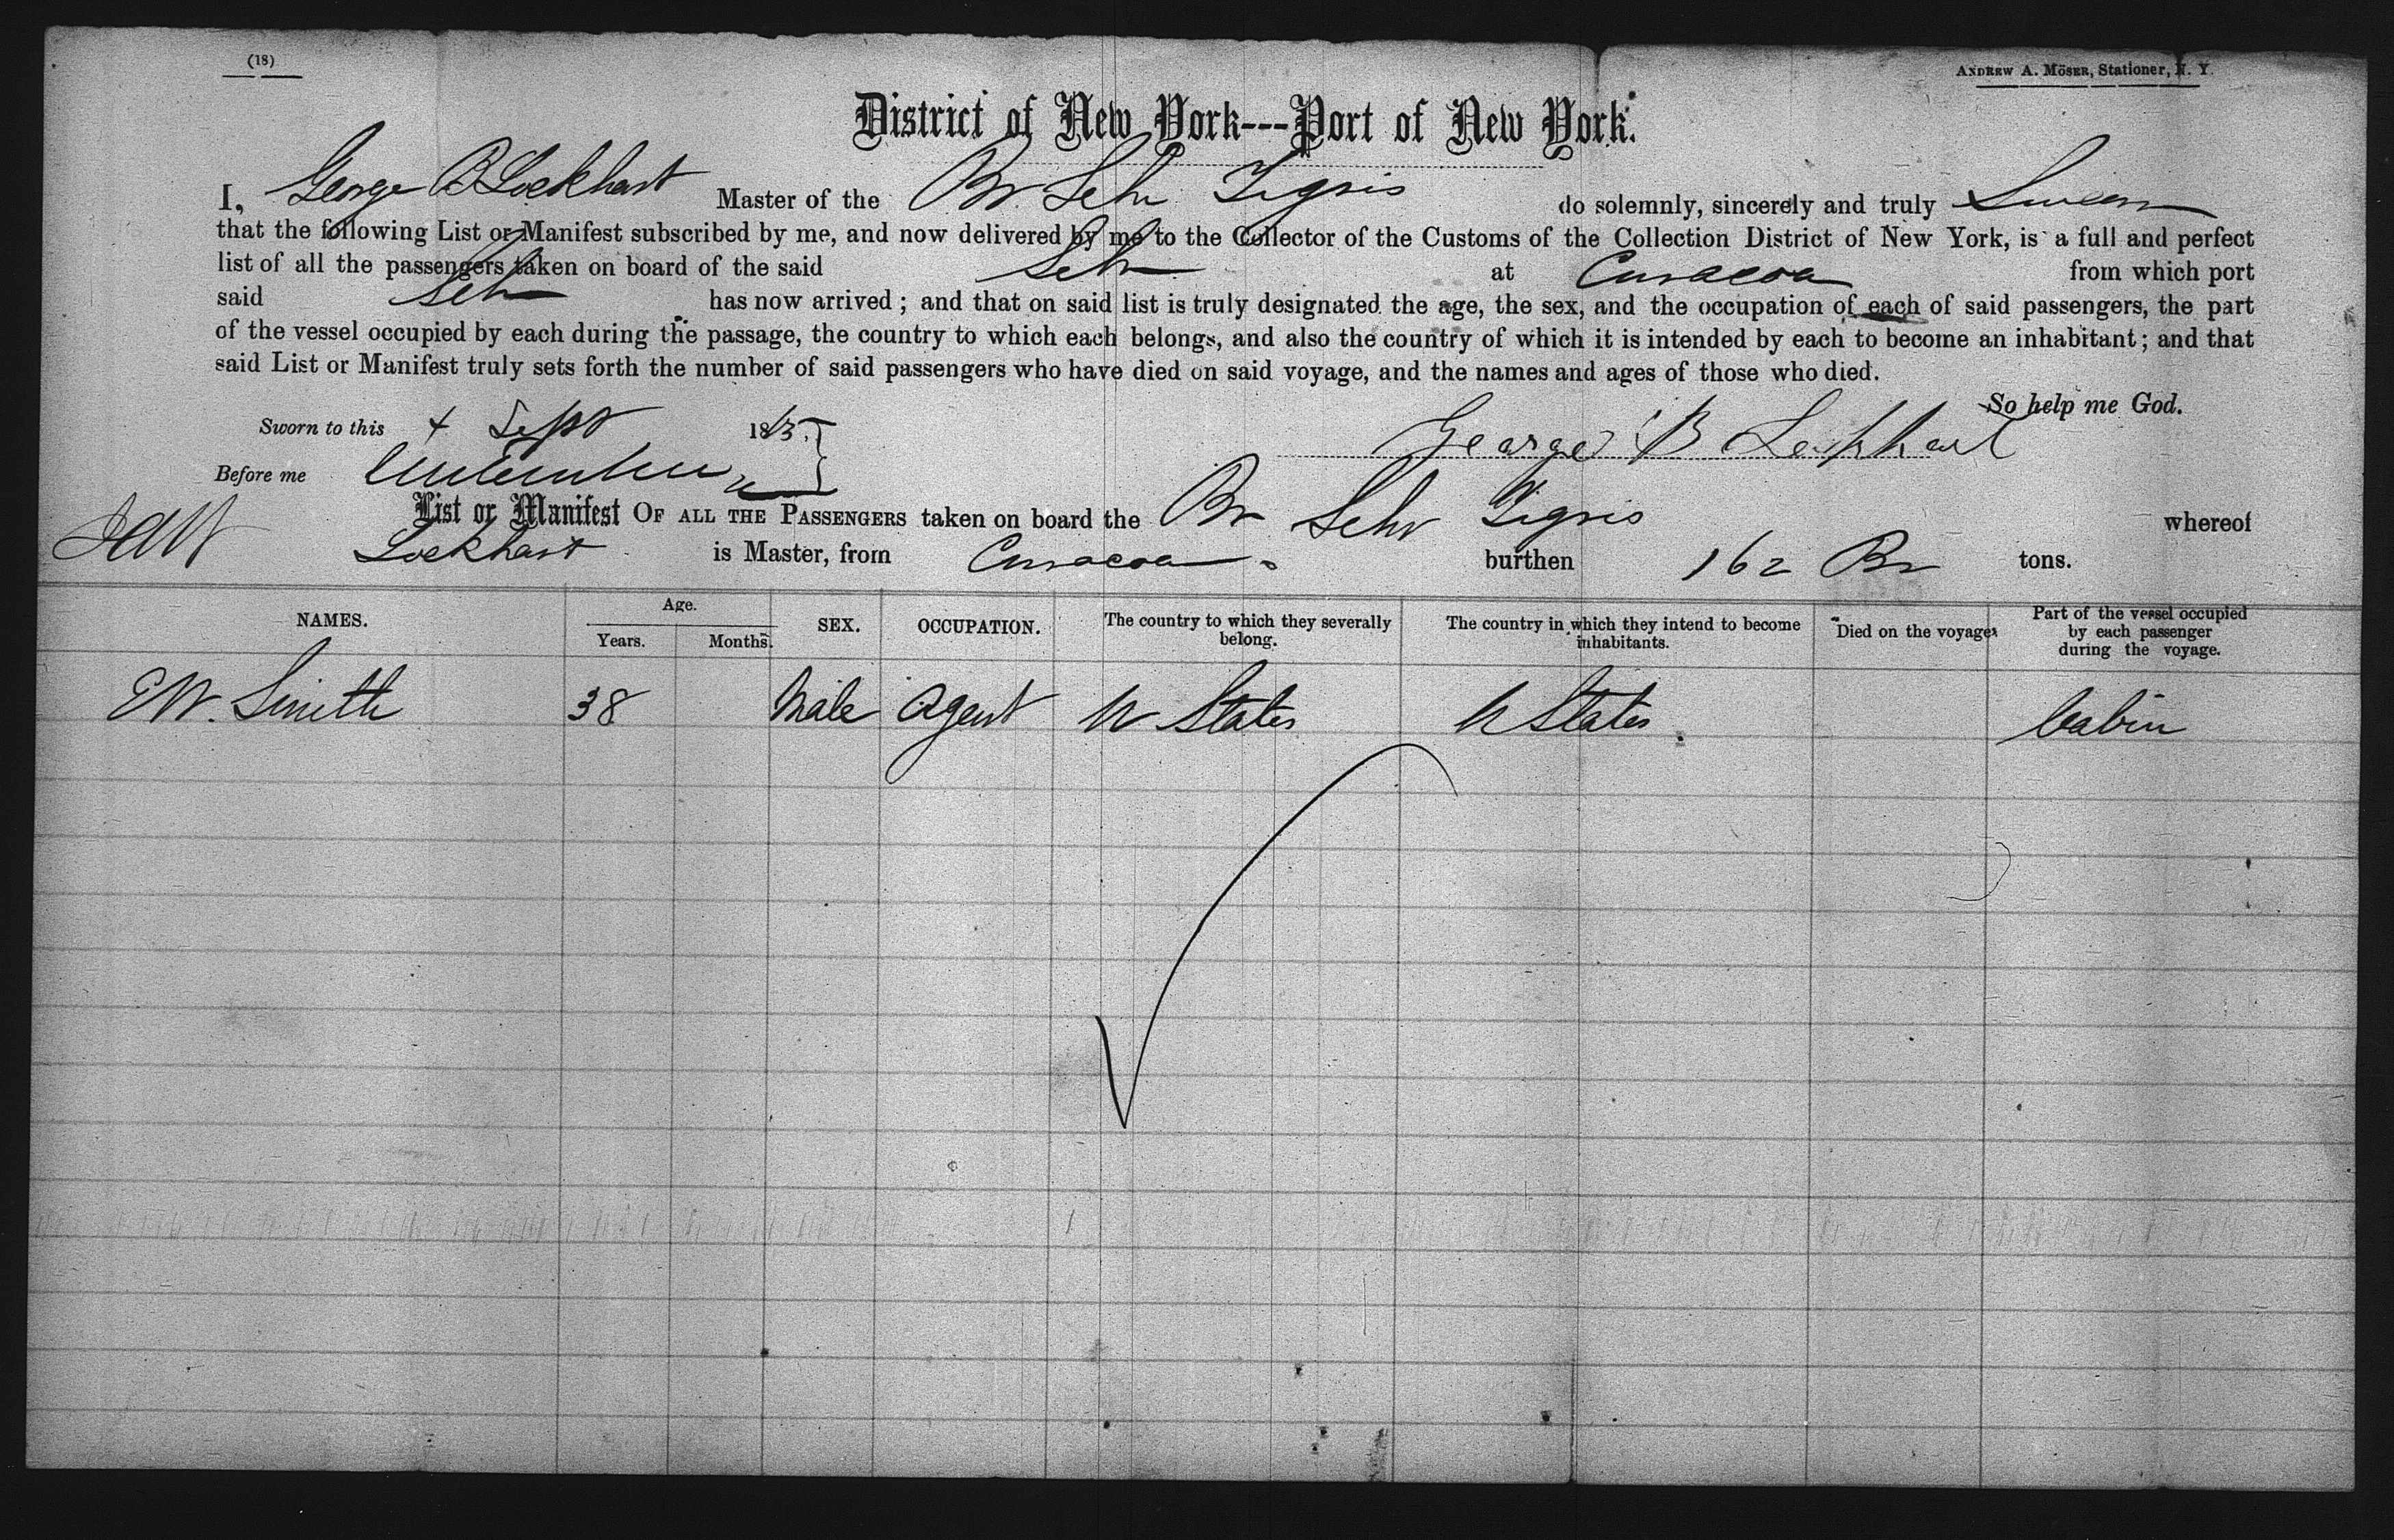 (18)
ANDREW A. MÖSER, Stationer, N. Y.
District of New York---Port of New York.
I, George B Lockhart Master of the Br. Schr Tigris do solemnly, sincerely and truly Swear
that the following List or Manifest subscribed by me, and now delivered by me to the Collector of the Customs of the Collection District of New York, is a full and perfect
list of all the passengers taken on board of the said Schr at Curacoa from which port
said Schr has now arrived; and that on said list is truly designated the age, the sex, and the occupation of each of said passengers, the part
of the vessel occupied by each during the passage, the country to which each belongs, and also the country of which it is intended by each to become an inhabitant; and that
said List or Manifest truly sets forth the number of said passengers who have died on said voyage, and the names and ages of those who died.
So help me God.
Sworn to this 4 Sept 1883
George B Lockhart
Before me
List or Manifest OF ALL THE PASSENGERS taken on board the Br Schr Tigris whereof
Lockhart is Master, from Curacoa burthen 162 Br tons.
NAMES. Age. Years. Months. SEX. OCCUPATION. The country to which they severally belong. The country in which they intend to become inhabitants. Died on the voyage. Part of the vessel occupied by each passenger during the voyage.
E W. Smith 38 Male Agent U States U States. Cabin